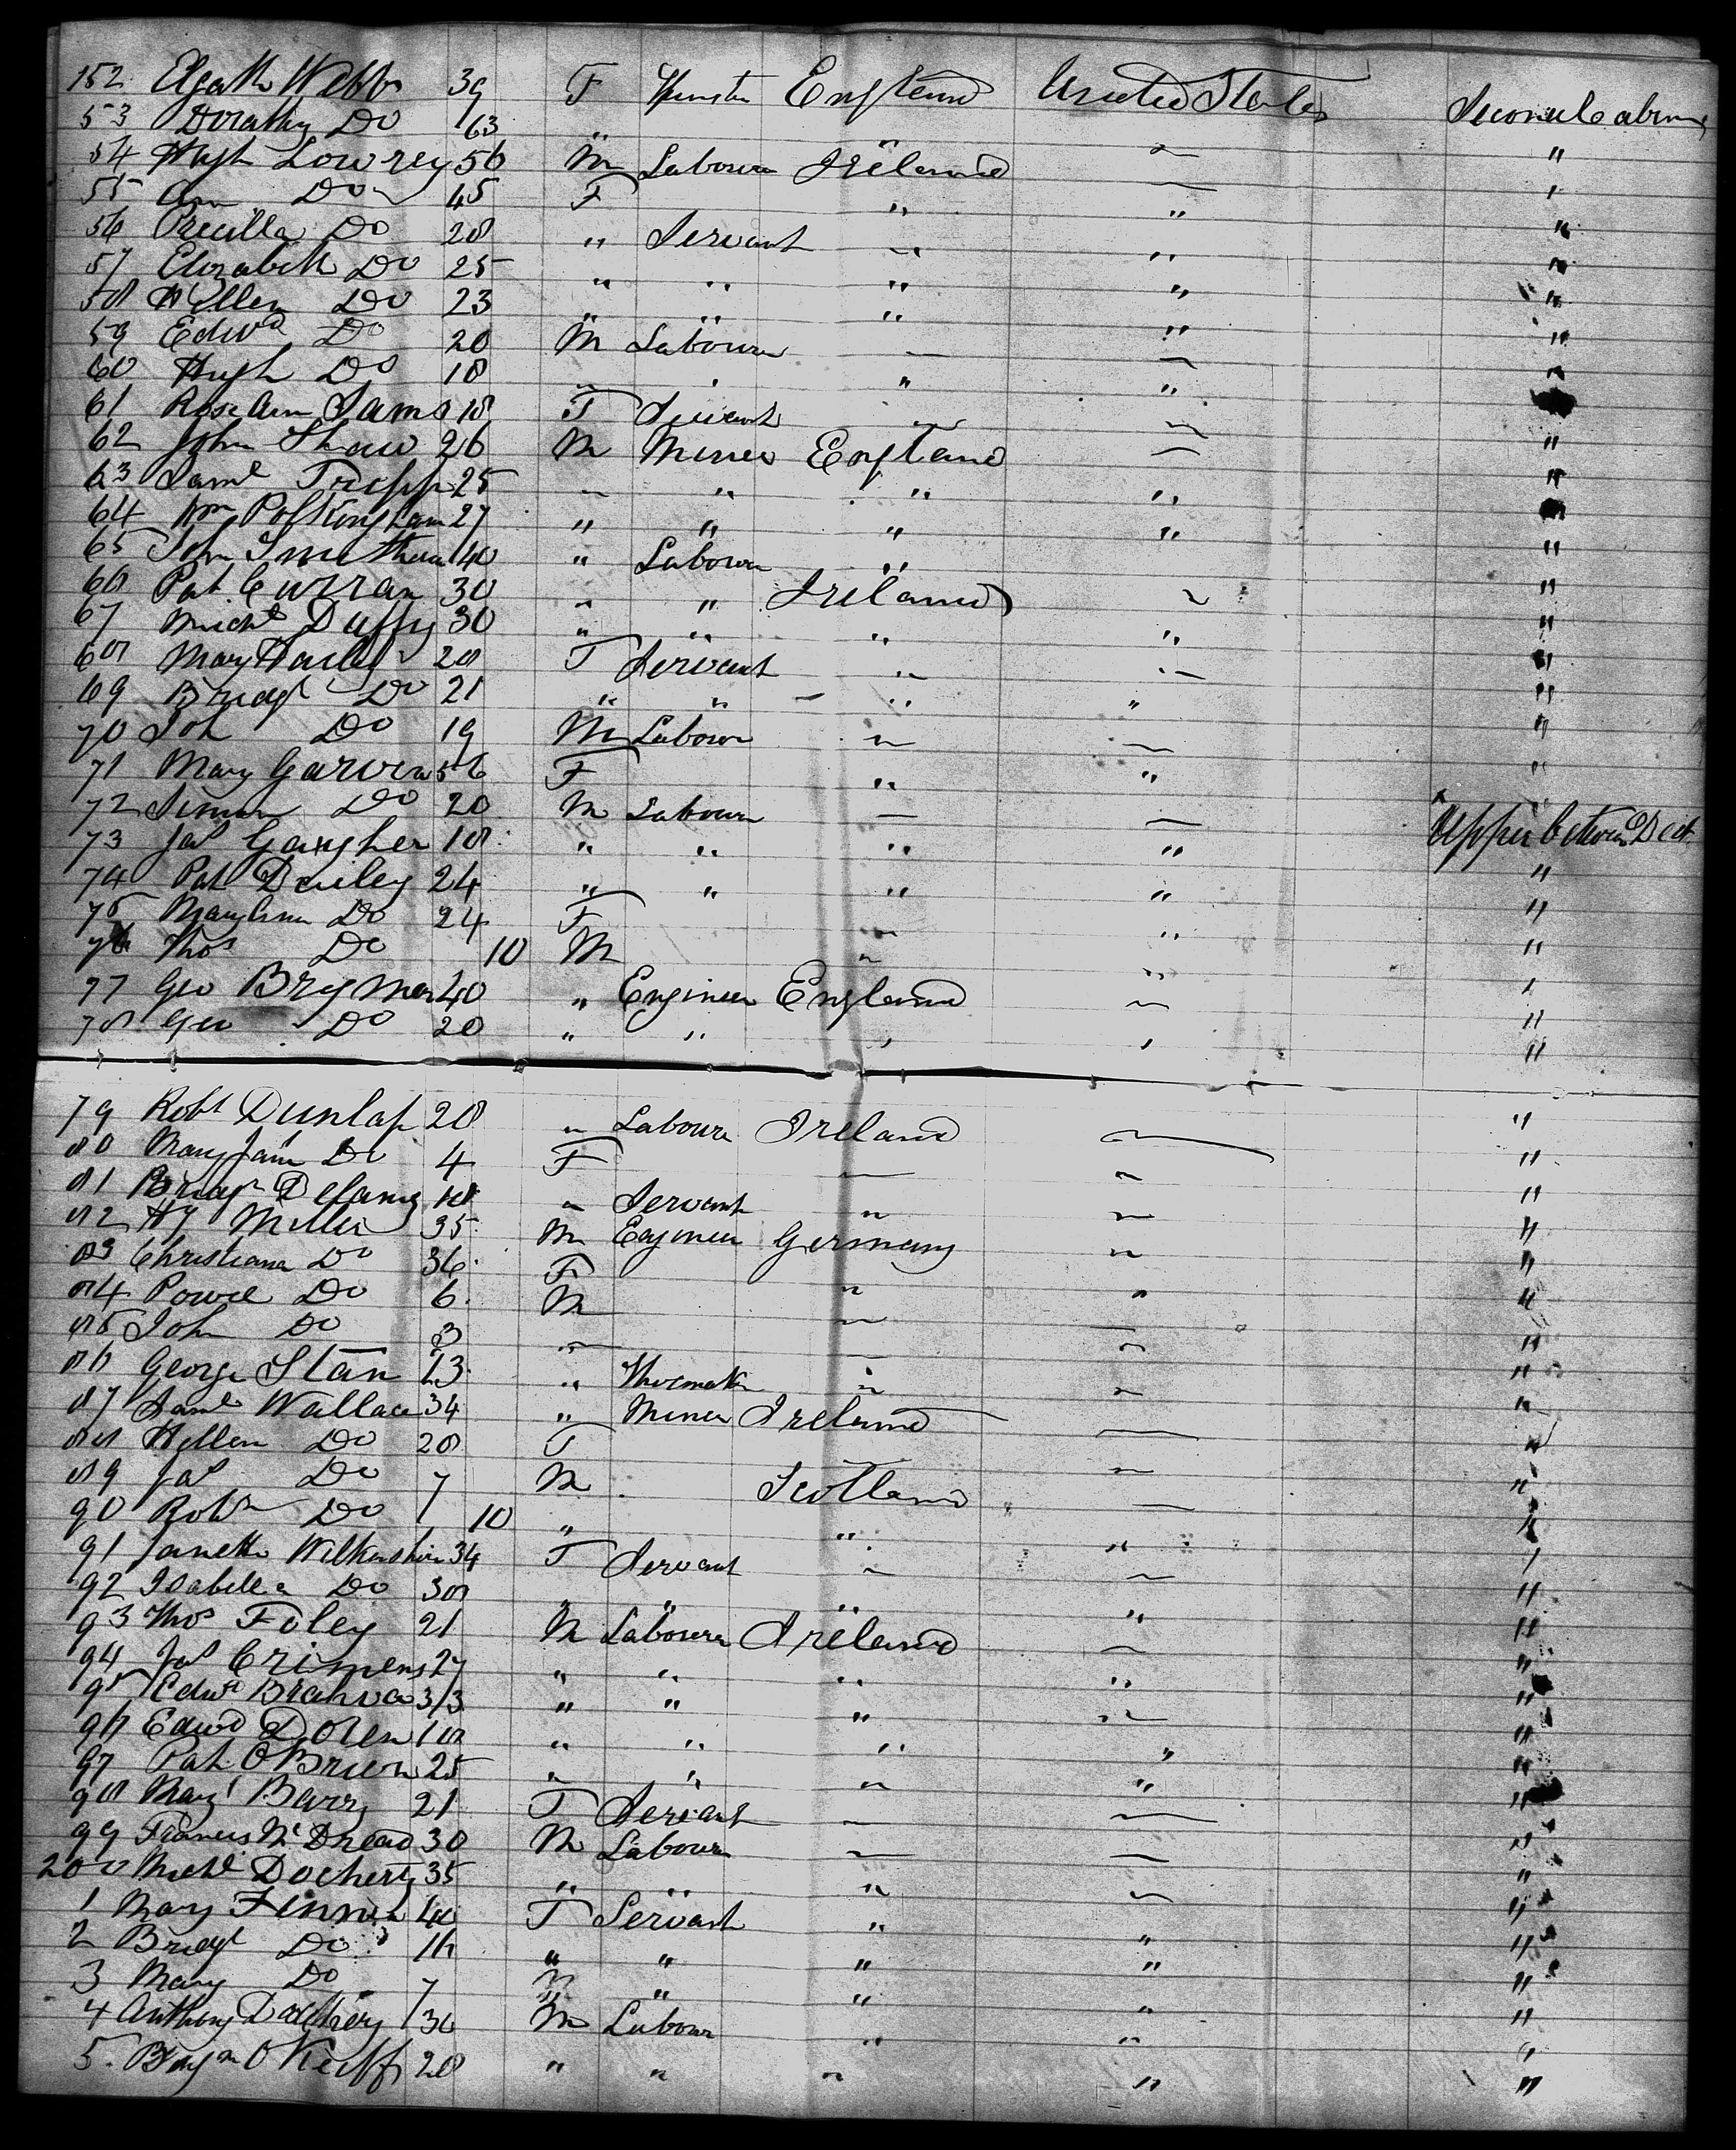 152 Elzath Webb 39 F Spinster England United States Second Cabin
53 Dorathy Do 63 " " "
54 Hugh Lowrey 56 M Labourer Ireland " "
55 Ann Do 45 F " " "
56 Precilla Do 28 " Servant " " "
57 Elizabeth Do 25 " " " " "
58 Hellen Do 23 " " " " "
59 Edwd Do 20 M Labourer " " "
60 Hugh Do 18 " " " " "
61 Rose Ann Sams 18 F Servant " " "
62 John Shaw 26 M Miner England " "
63 Saml Tripp 25 " " " " "
64 Wm Polkingham 27 " " " " "
65 John 40 " Labourer " "
66 Pat Curran 30 " " Ireland " "
67 Michl Duffy 30 " " " " "
68 Mary 28 F Servant " " "
69 Bridgt Do 21 " " " " "
70 Joh Do 19 M Labourer " " "
71 Mary Garvin 56 F " " "
72 Simon Do 20 M Labourer " " Upper between Deck
73 Jas Gaugher 18 " " " " "
74 Pat Dailey 24 " " " " "
75 Mary Ann Do 24 F " " "
76 Thos Do 10 M " " "
77 Geo Brymer 40 " Engineer England " "
78 Geo Do 20 " " " " "
79 Robt Dunlap 28 " Labourer Ireland " "
80 Mary Jane Do 4 F " " "
81 Bridgt Delany 18 " Servant " " "
82 Hy Miller 35 M Engineer Germany " "
83 Christiana Do 36 F " " "
84 Do 6 M " " "
85 John Do 3 " " " "
86 George Stan 23 " Shoemaker " " "
87 Saml Wallace 34 " Miner Ireland " "
88 Hellen Do 28 F " "
89 Jas Do 7 M Scotland " "
90 Robt Do 10 " " " "
91 Janette Wilkenshire 34 F Servant " " "
92 Isabella Do 38 " " " " "
93 Thos Foley 21 M Labourer Ireland " "
94 Jas Crimens 27 " " " " "
95 Edwd 33 " " " " "
96 Edwd Dolen 18 " " " " "
97 Pat O Brien 25 " " " " "
98 Margt Barry 21 F Servant " " "
99 Francis Mc 30 M Labourer " " "
200 Michl Docherty 35 " " " " "
1 Mary 40 F Servant " " "
2 Bridgt Do 16 " " " " "
3 Mary Do 7 " " " " "
4 Anthony 30 M Labour " " "
5 O Keiff 28 " " " " "